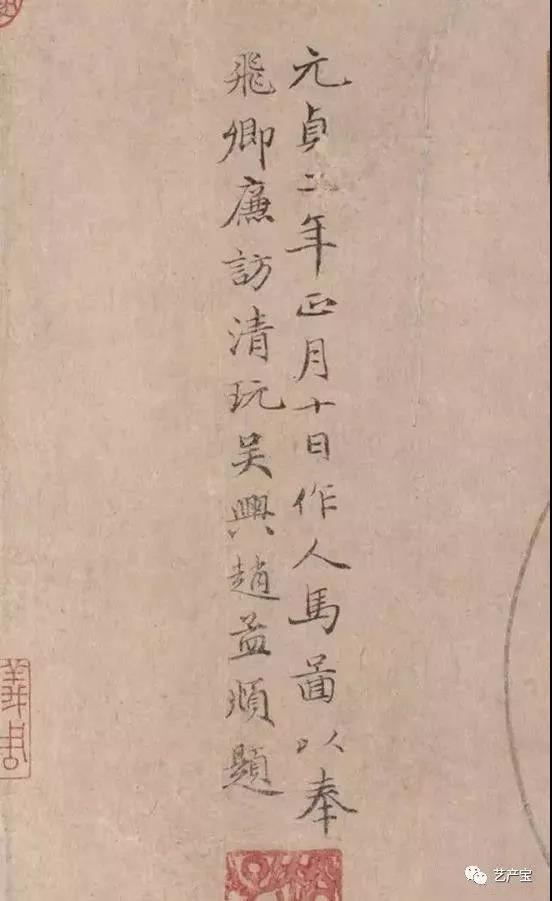 元貞二年正月十日作人馬啚以奉
飛卿廉訪清玩吳興趙孟頫題
艺产宝